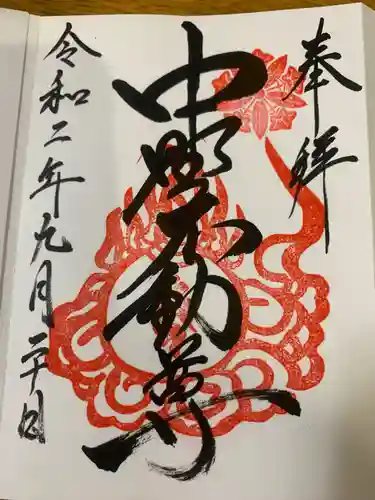 奉拝
中野不動尊
令和二年九月二十日